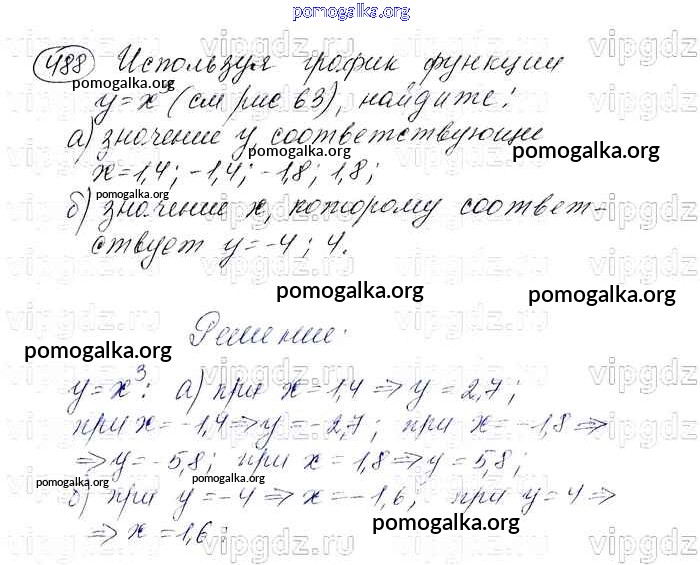 pomogalka.org
488 Используя график функции
y=x (см рис 63), найдите:
а) значение y соответствующее
x=1,4; -1,4; -1,8; 1,8;
б) значение x, которому соответ-
ствует y=-4; 4.
Решение:
y=x³: а) при x=1,4 => y=2,7;
при x=-1,4=>y=-2,7; при x=-1,8=>
=>y=-5,8; при x=1,8=>y=5,8;
б) при y=-4=>x=-1,6, при y=4=>
=> x=1,6;